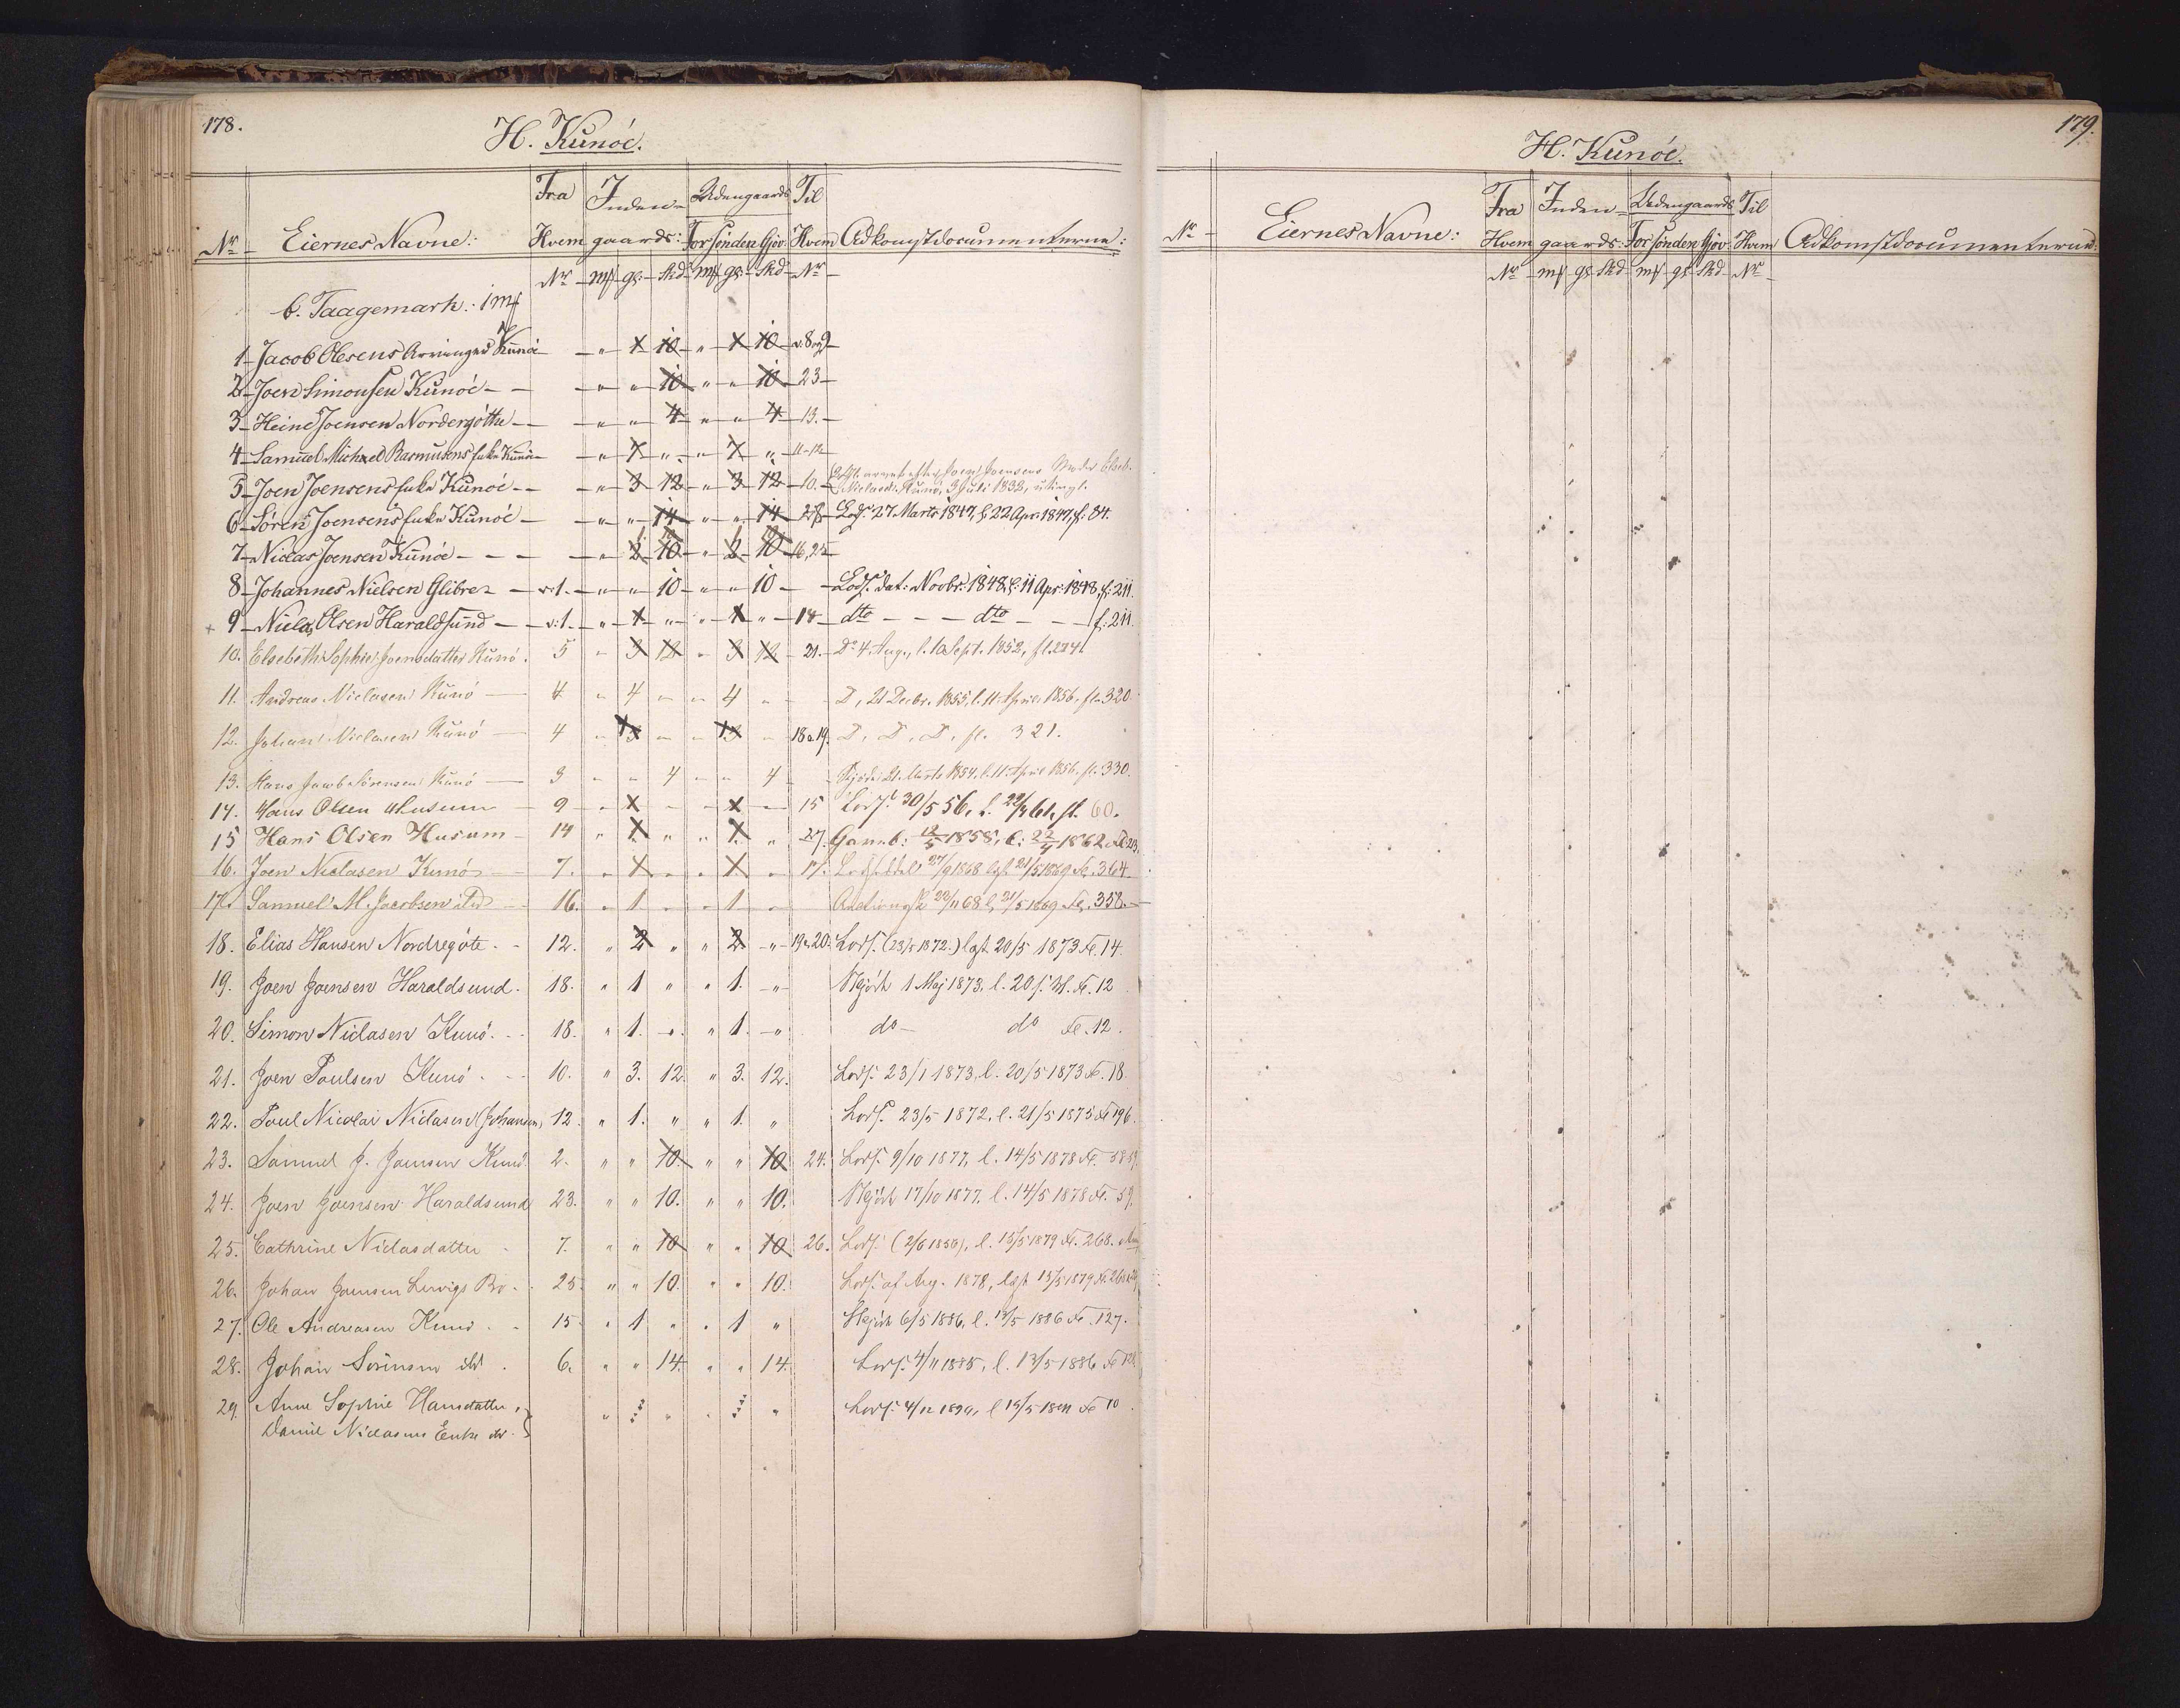 178.
H. Kunöe.
Fra Inden- Udengaards Til
Nr Eiernes Navne: Hvem gaards: for sønden Gjov. Hvem Adkomstdocumenterne:
Nr mk gl. Skd mk gl. Skd Nr
b. Taagemark: 1 mk
1 Jacob Olesens Arvinger Kunöe " 1 10 " 1 10 v. 8 og 9
2 Joen Simonsen Kunöe " " 10 " " 10 23
3 Heine Joensen Nordergöthe " " 4 " " 4 13.
4 Samuel Michael Rasmusens Enke Kunöe " 7 " " 7 " 11-12
5 Joen Joensens Enke Kunöe " 3 12 " 3 12 10. arvet efter Joen Joensens Moder Elseb. Kunö, 3 Juli 1838, utingl.
6 Sören Joensens Enke Kunöe " " 14 " " 14 28 Lods. 27 Marts 1847, l. 22 Apr. 1847, f: 84.
7 Niclas Joensen Kunöe " 2 10 " 2 10 16, 25
8 Johannes Nielsen Glibre v. 1. " " 10 " " 10 Lods. dat: Novbr. 1848, l: 11 Apr. 1848, f: 211.
+ 9 Niels Olsen Haraldsund v. 1. " 1 " " 1 " 14 dto dto f: 211.
10. Elsebeth Sophie Joensdatter Kunö. 5 " 3 12 " 3 12 21. Do 4 Aug., l. 10 Sept. 1852, fl. 274.
11. Andreas Niclasen Kunö 4 " 4 " " 4 " D, 21 Decbr. 1855, l. 11 April 1856, fl. 320.
12. Johan Niclasen Kunö 4 " 3 " " 3 " 18 o 19. D, D, D, fl. 321.
13. Hans Jacob Sörensen Kunö 3 " " 4 " " 4 Skjöde 21. Marts 1854, l. 11 April 1856. fl. 330.
14. Hans Olsen Husum 9 " 1 " " 1 " 15 Lods. 30/5 56, l. 22/4 61, fl. 60.
15 Hans Olsen Husum 14 " 1. " " 1. " 27. Gaveb: 12/5 1858, l: 22/4 1862 Fl: 23.
16. Joen Niclasen Kunö 7. " 1 " " 1 " 17. Lodseddel 27/9 1868 lgl. 21/5 1869 Fl. 364
17. Samuel M. Jacobsen ibd 16. " 1 " " 1 " Auctionssk 20/11 68 l. 21/5 1869 Fl. 358.
18. Elias Hansen Nordregöte. 12. " 2 " " 2 " 19 o. 20. Lods. (23/5 1872.) lgl. 20/5 1873 Fl. 14.
19. Joen Joensen Haraldsund. 18. " 1 " " 1. " Skjöde 1 Maj 1873, l. 20 s. M. Fl. 12
20. Simon Niclasen Kunö. 18. " 1. " " 1. " do do Fl. 12.
21. Joen Poulsen Kunö. 10. " 3. 12. " 3. 12. Lods. 23/1 1873, l. 20/5 1873 Fl. 18.
22. Poul Nicolai Niclasen (Johansen) 12. " 1. " " 1. " Lods. 23/5 1872, l. 21/5 1875 Fl 196.
23. Samuel J. Joensen Kunö. 2. " " 10. " " 10. 24. Lods. 9/10 1877, l. 14/5 1878 Fl. 58
24. Joen Joensen Haraldsund 23. " " 10. " " 10. Skjöde 17/10 1877. l. 14/5 1878 Fl. 59.
25. Cathrine Niclasdatter 7. " " 10 " " 10 26. Lods. (2/6 1856), l. 15/5 1879 Fl. 268.
26. Johan Joensen Lervigs Bö. 25 " " 10. " " 10. Lods. af Aug. 1878, lgl. 15/5 1879 Fl. 268
27. Ole Andreasen Kunö. 15. " 1 " " 1 " Skjöde 6/5 1886, l. 13/5 1886 Fl. 127.
28. Johan Sörensen ibd. 6. " " 14. " " 14. Lods. 4/11 1885, l. 13/5 1886 Fl 128.
29. Anne Sophie Hansdatter,
Daniel Niclasens Enke ibd. " " " " Lods. 4/12 1890, l 15/5 1891 Fl 10.
179.
H. Kunöe.
Fra Inden- Udengaards Til
Nr Eiernes Navne: Hvem gaards: for sønden Gjov. Hvem Adkomstdocumenterne:
Nr mk gl Skd mk gl Skd Nr